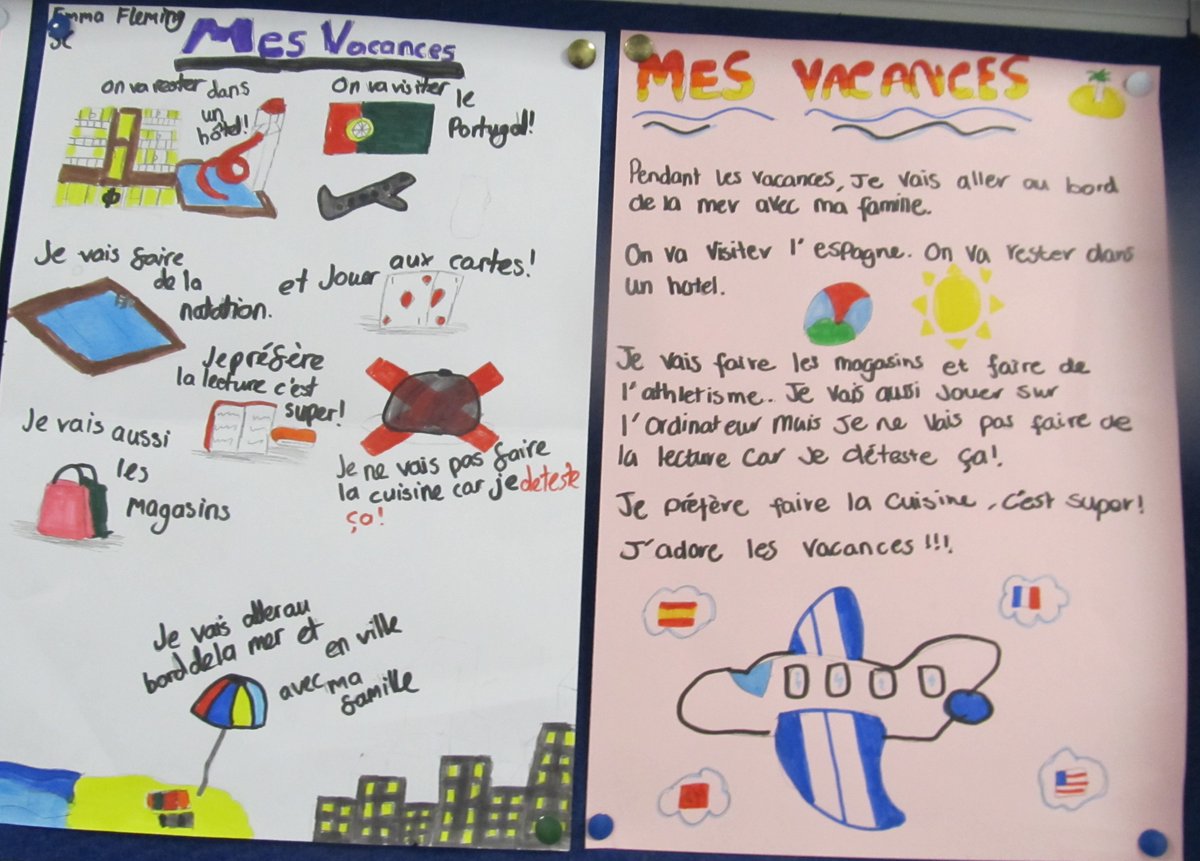 Emma Fleming
Mes Vacances
On va rester dans
un
hôtel!
On va visiter le
Portugal!
Je vais faire
de la
natation.
et Jouer aux cartes!
Je préfère
la lecture c'est
super!
Je vais aussi
les
magasins
Je ne vais pas faire
la cuisine car je deteste
ça!
Je vais aller au
bord de la mer et en ville
avec ma
famille
MES VACANCES
Pendant les vacances, Je vais aller au bord
de la mer avec ma famille.
On va visiter l'espagne. On va rester dans
un hotel.
Je vais faire les magasins et faire de
l'athletisme. Je vais aussi Jouer sur
l'ordinateur mais Je ne vais pas faire de
la lecture car Je déteste ça!
Je préfère faire la cuisine, c'est super!
J'adore les vacances!!!